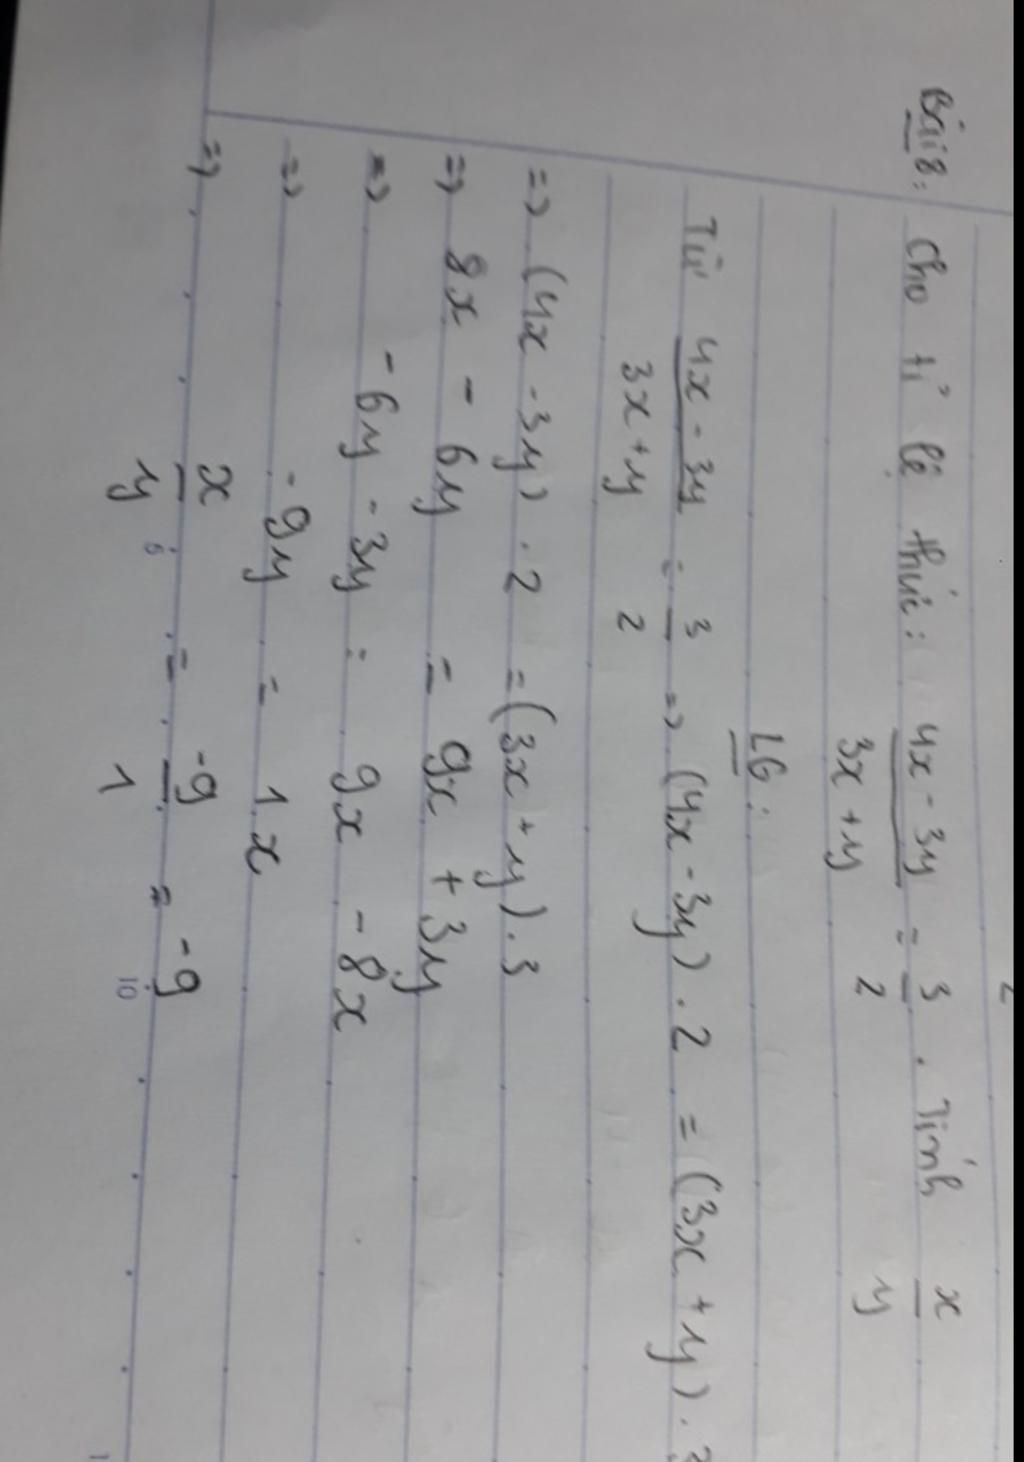 Bài 8: Cho tỉ lệ thức: 4x - 3y / 3x + y = 3/2 . Tính x/y
LG:
Từ 4x - 3y / 3x + y = 3/2 => (4x - 3y) . 2 = (3x + y) .
=> (4x - 3y) . 2 = (3x + y) . 3
=> 8x - 6y = 9x + 3y
=> - 6y - 3y = 9x - 8x
=> - 9y = 1x
=> x/y = -9/1 = -9